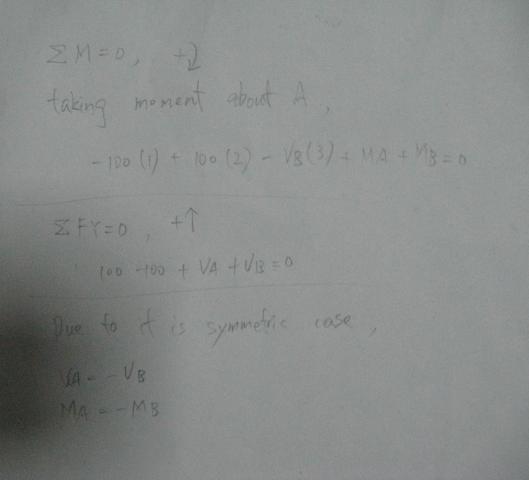 Σ M = 0, +↷
taking moment about A,
-100 (1) + 100 (2) - VB(3) + MA + MB = 0
Σ FY = 0, +↑
100 -100 + VA + VB = 0
Due to it is symmetric case,
VA = - VB
MA = - MB